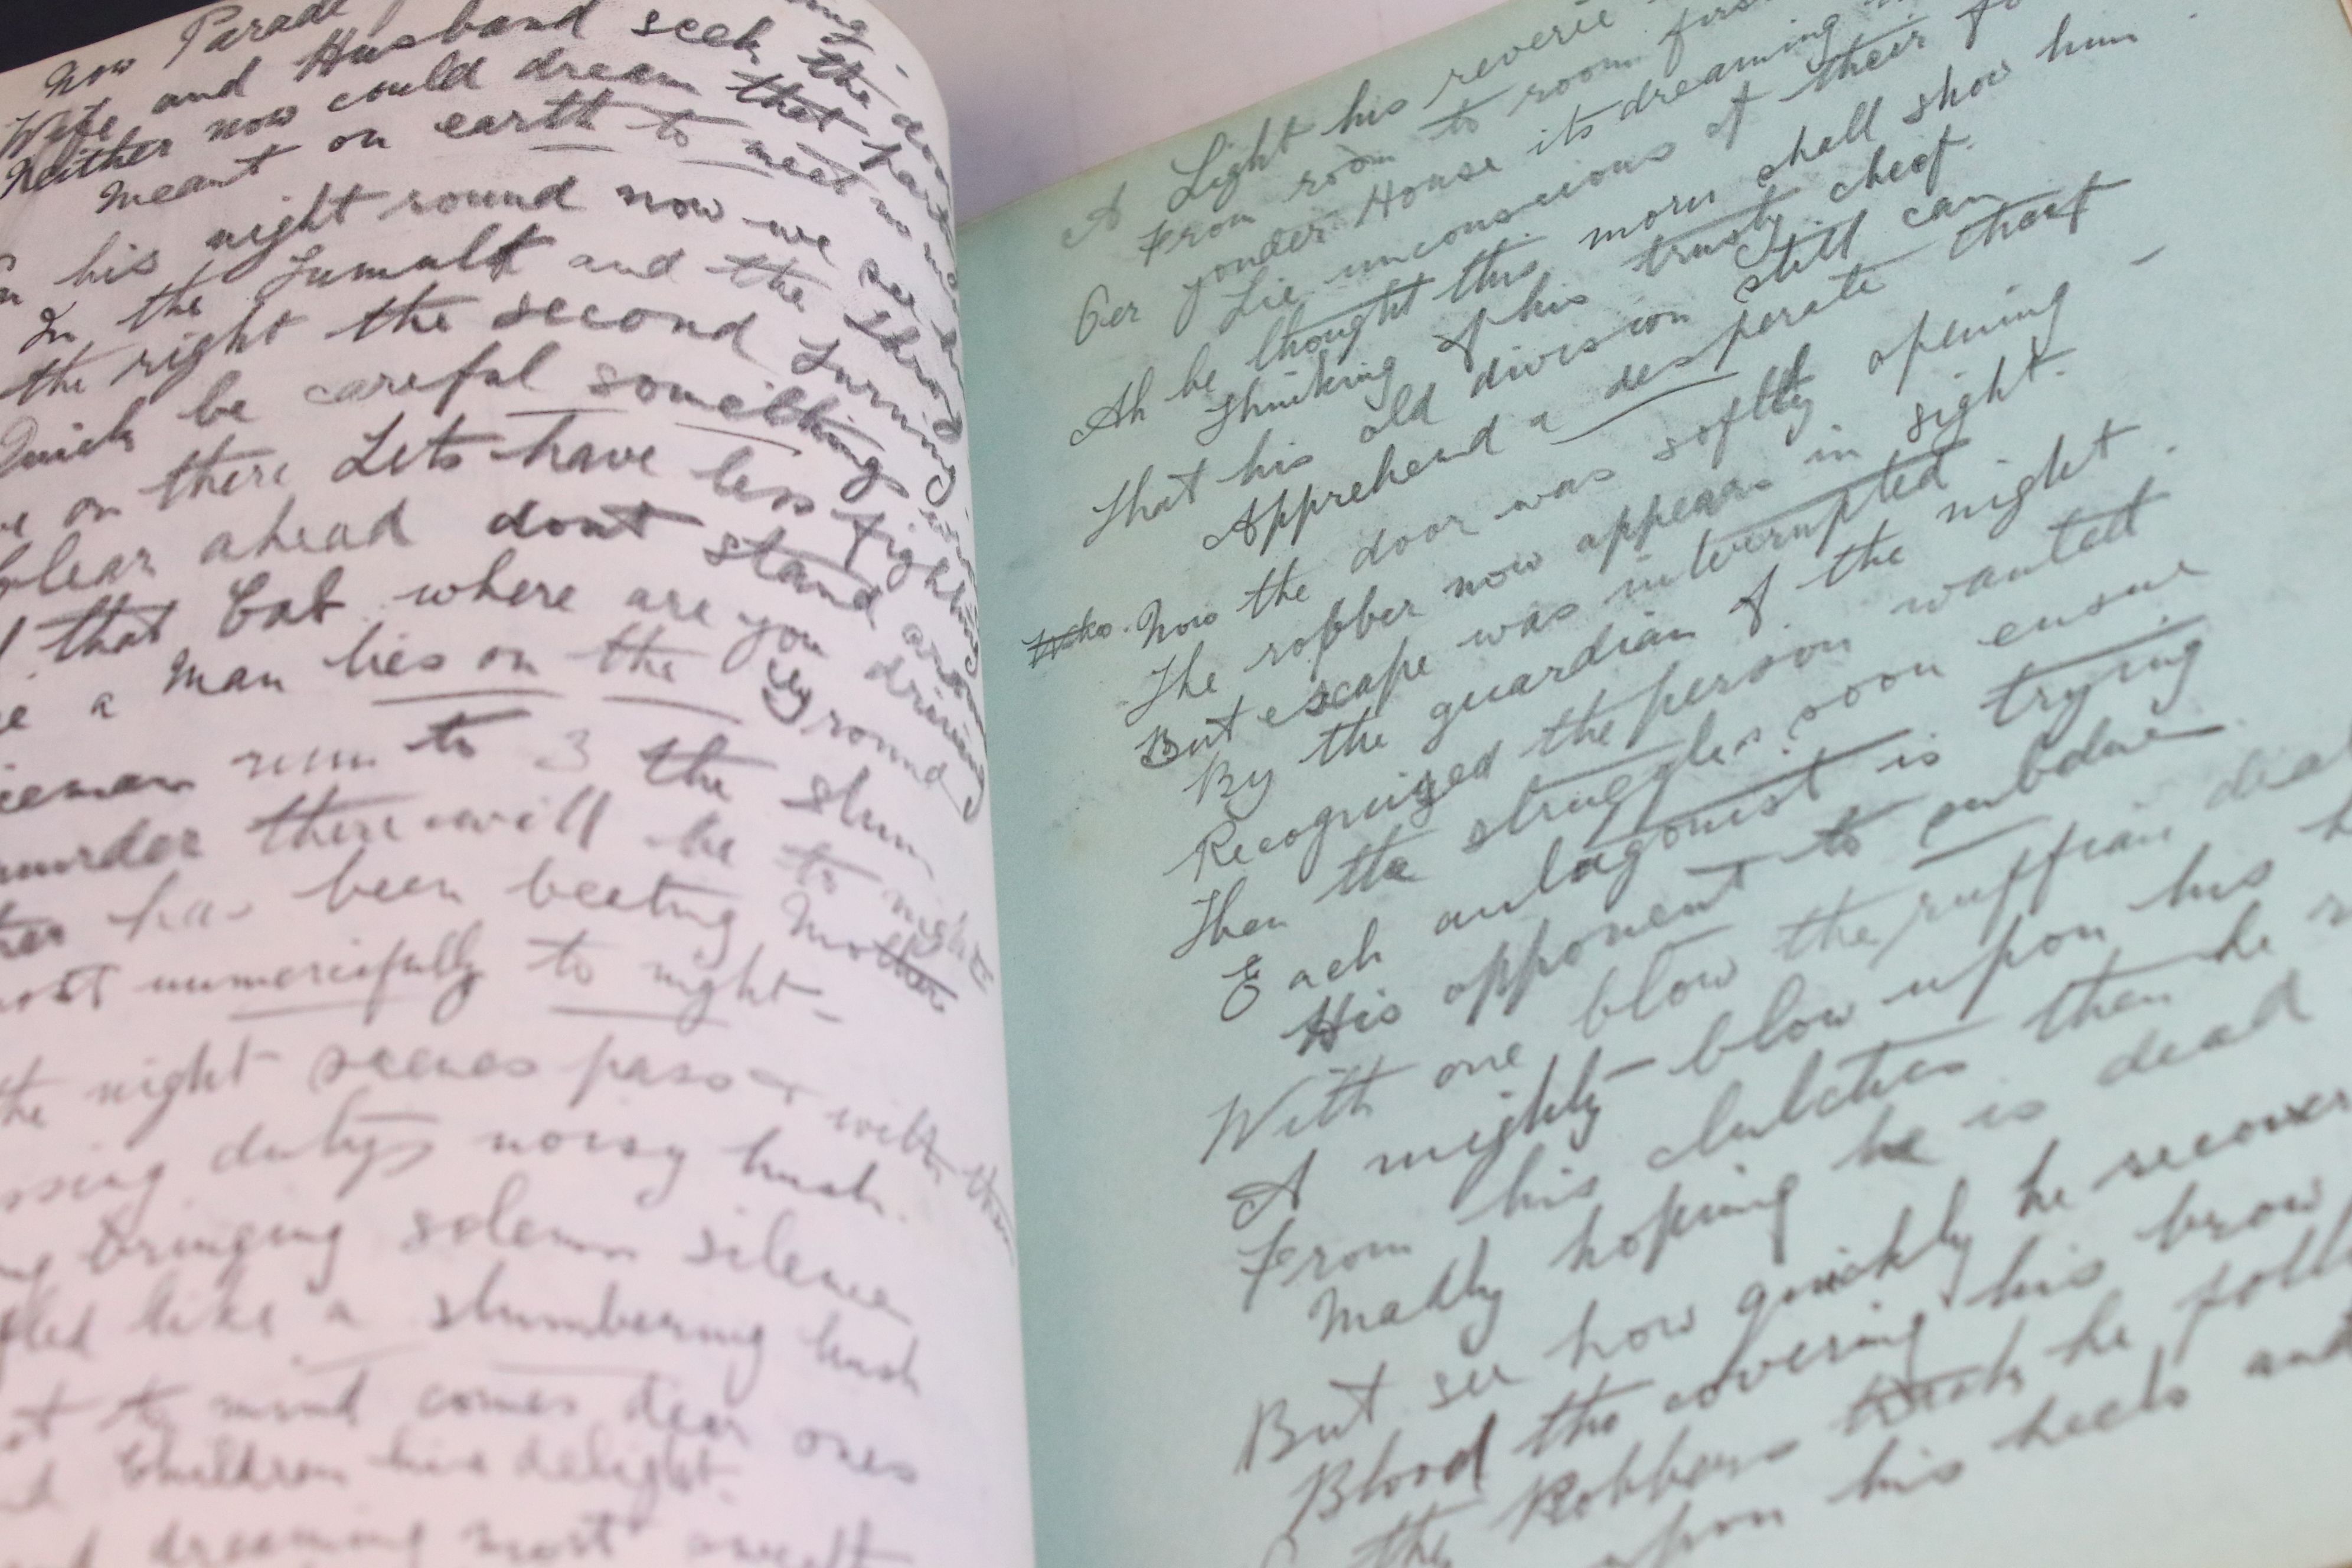 now Parade
Wife and Husband seek the
Neither now could dream that
meant on earth to meet
his night round now we see
In the Tumult and the
the right the second Turning
Quick be careful somethings
on there Lets have less fighting
Clear ahead dont stand
that Cab where are you driving
a Man lies on the ground
run to 3 the slum
murder there will be to night
has been beeting Mother
unmercifully to night
night scenes pass with
dutys noisy
bringing solemn silence
like a slumbering hush
to mind comes dear ones
Children his delight.
dreaming most
A Light his reverie
From room to room first
Oer yonder House its dreaming
Lie unconscious of their
Ah be thought this morn shall show him
Thinking of his trusty chief.
That his old division still can
Apprehend a desperate thief
Now the door was softly opening
The robber now appears in sight.
But escape was interrupted
By the guardian of the night.
Recognized the person wanted
Then the struggles soon ensue
Each antagonist is trying
His opponent to subdue
With one blow the ruffian
A mighty blow upon his
From his clutches then he
Madly hoping he is dead
But see how quickly he recovers
Blood the covering his brow
the Robbers track he
upon his heels and